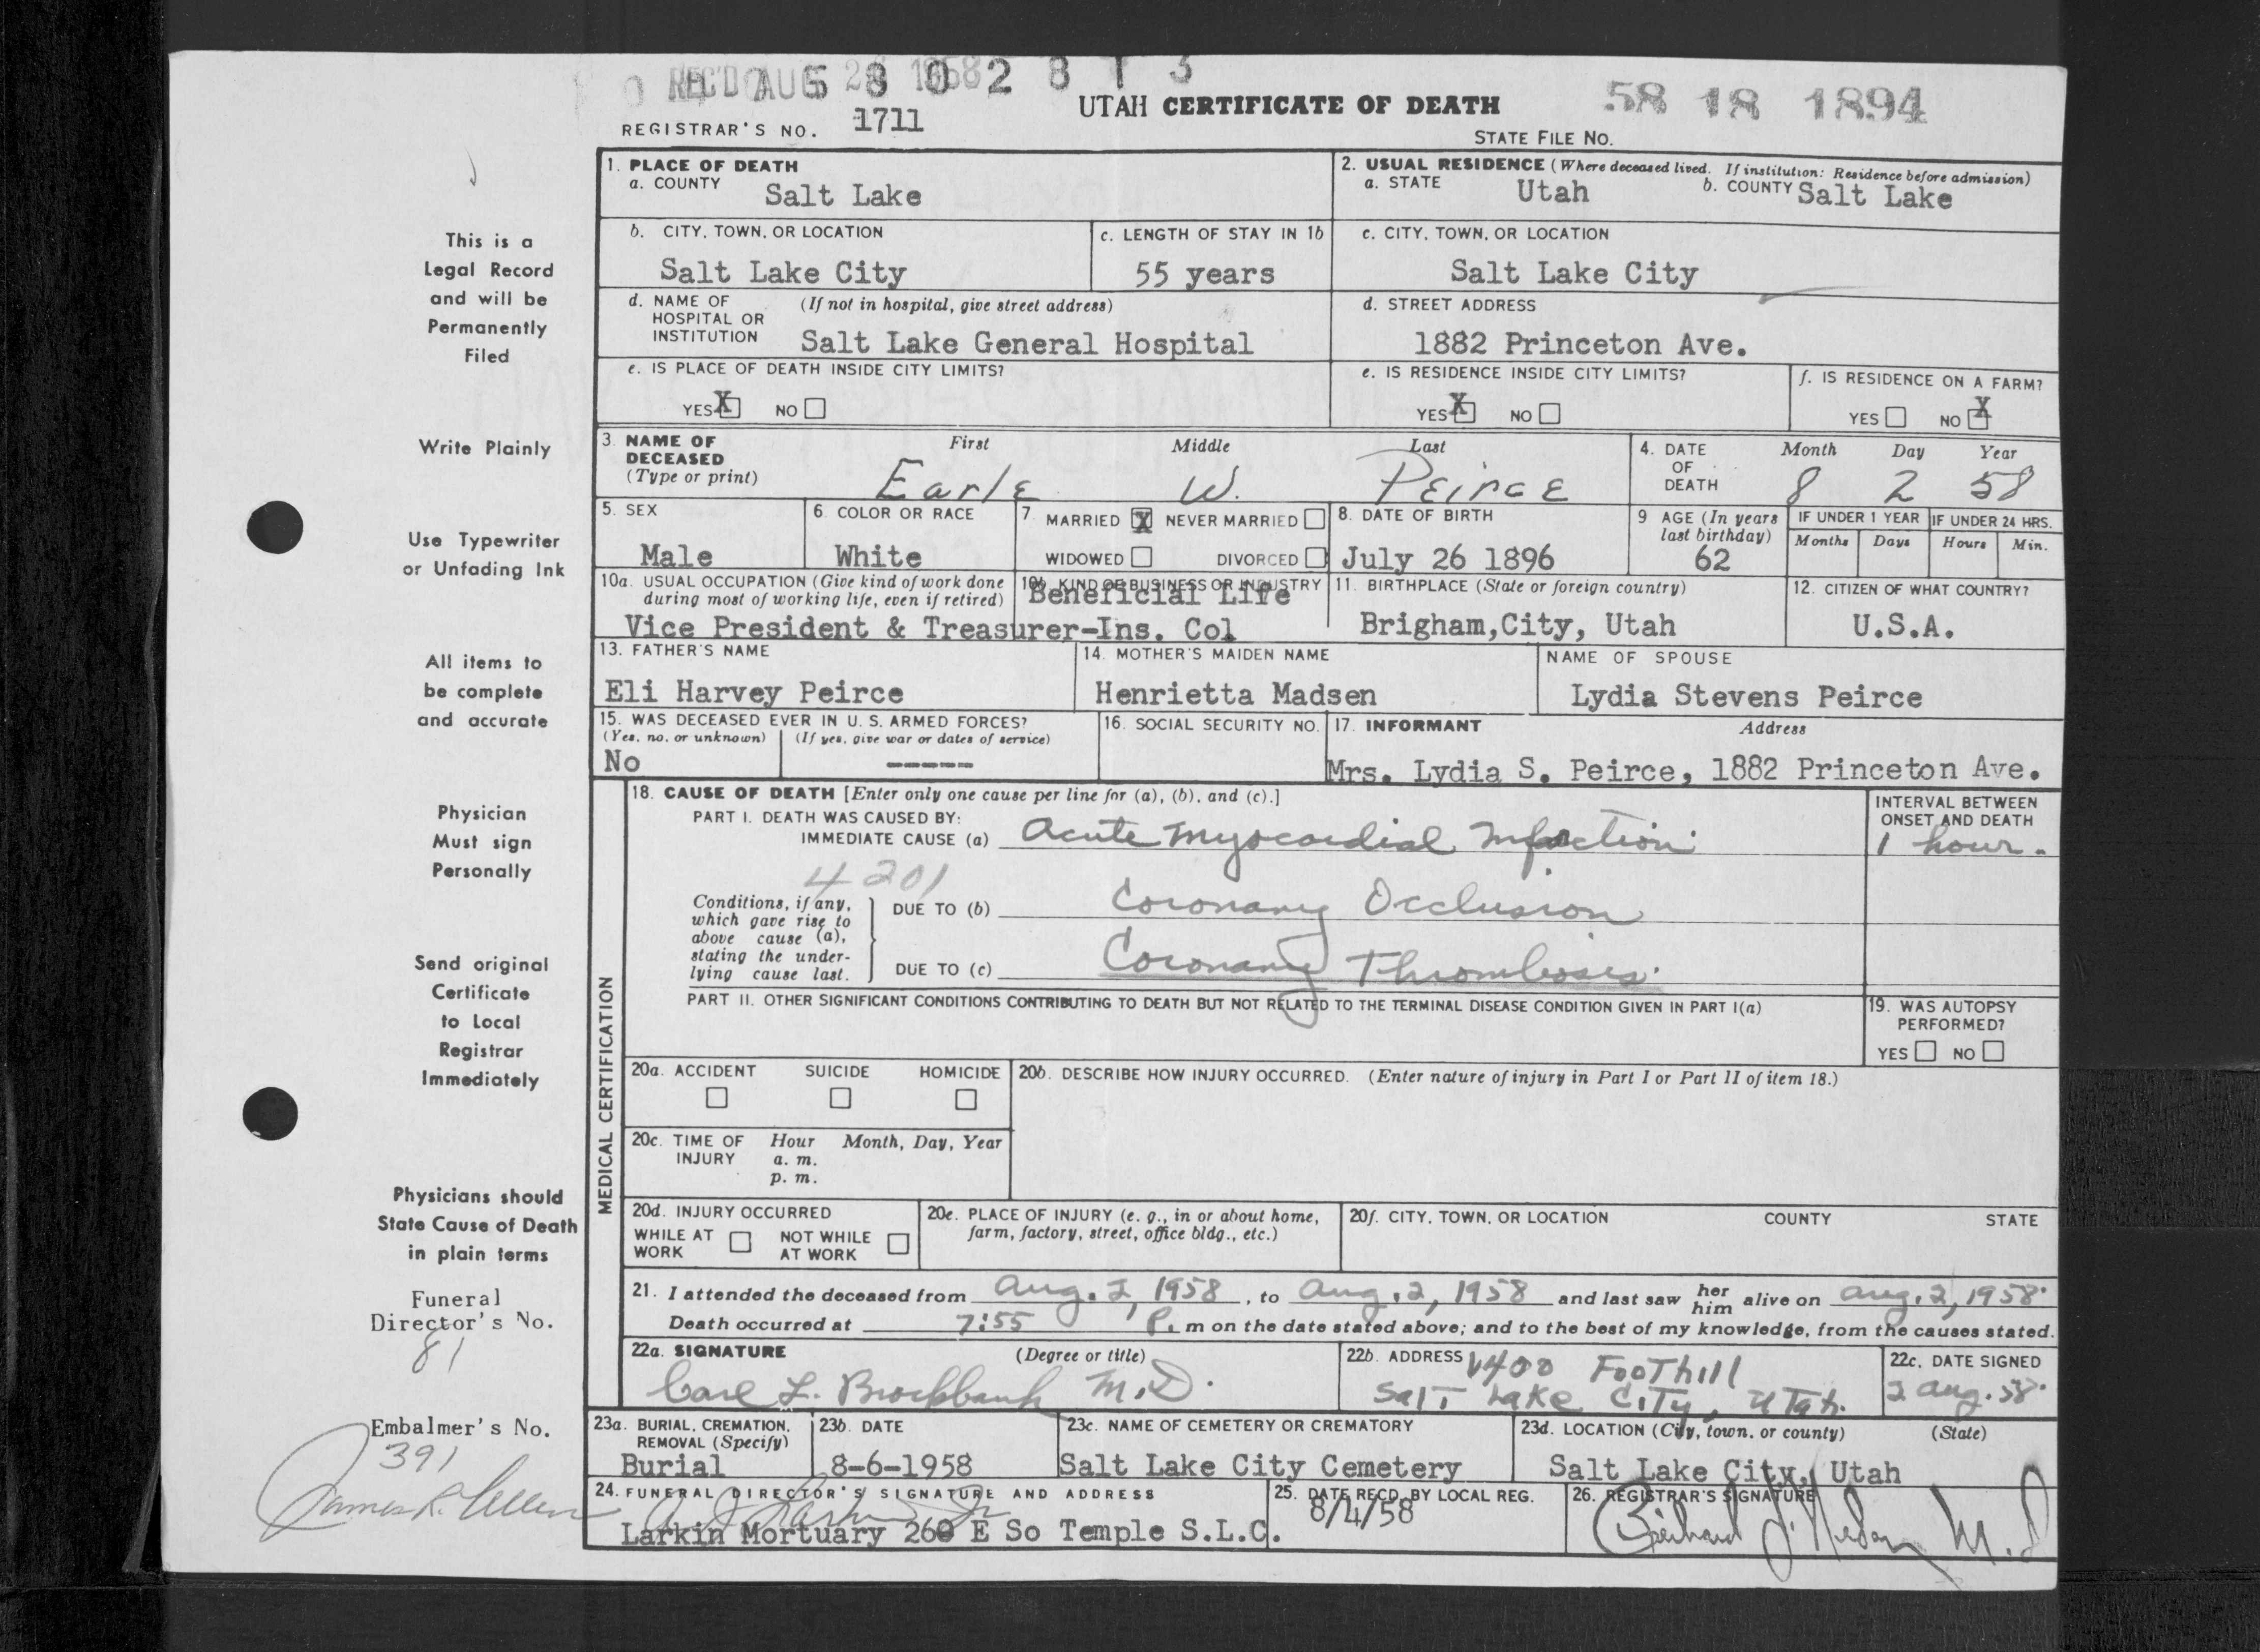 REC'D AUG 58 0 2 8 1 3
UTAH CERTIFICATE OF DEATH
58 18 1894
REGISTRAR'S NO. 1711
STATE FILE NO.
1. PLACE OF DEATH
a. COUNTY Salt Lake
2. USUAL RESIDENCE (Where deceased lived. If institution: Residence before admission)
a. STATE Utah b. COUNTY Salt Lake
b. CITY, TOWN, OR LOCATION
Salt Lake City
c. LENGTH OF STAY IN 1b
55 years
c. CITY, TOWN, OR LOCATION
Salt Lake City
d. NAME OF HOSPITAL OR INSTITUTION (If not in hospital, give street address)
Salt Lake General Hospital
d. STREET ADDRESS
1882 Princeton Ave.
e. IS PLACE OF DEATH INSIDE CITY LIMITS?
YES X NO
e. IS RESIDENCE INSIDE CITY LIMITS?
YES X NO
f. IS RESIDENCE ON A FARM?
YES NO X
3. NAME OF DECEASED (Type or print)
First Middle Last
Earle W. Peirce
4. DATE OF DEATH
Month Day Year
8 2 58
5. SEX
Male
6. COLOR OR RACE
White
7. MARRIED X NEVER MARRIED
WIDOWED DIVORCED
8. DATE OF BIRTH
July 26 1896
9 AGE (In years last birthday)
62
IF UNDER 1 YEAR
Months Days
IF UNDER 24 HRS.
Hours Min.
10a. USUAL OCCUPATION (Give kind of work done during most of working life, even if retired)
Vice President & Treasurer-Ins. Col
10b. KIND OF BUSINESS OR INDUSTRY
Beneficial Life
11. BIRTHPLACE (State or foreign country)
Brigham,City, Utah
12. CITIZEN OF WHAT COUNTRY?
U.S.A.
13. FATHER'S NAME
Eli Harvey Peirce
14. MOTHER'S MAIDEN NAME
Henrietta Madsen
NAME OF SPOUSE
Lydia Stevens Peirce
15. WAS DECEASED EVER IN U. S. ARMED FORCES?
(Yes, no, or unknown) (If yes, give war or dates of service)
No -----
16. SOCIAL SECURITY NO.
17. INFORMANT Address
Mrs. Lydia S. Peirce, 1882 Princeton Ave.
MEDICAL CERTIFICATION
18. CAUSE OF DEATH [Enter only one cause per line for (a), (b), and (c).]
PART I. DEATH WAS CAUSED BY:
IMMEDIATE CAUSE (a) Acute Myocardial Infarction
INTERVAL BETWEEN ONSET AND DEATH
1 hour.
4201
Conditions, if any, which gave rise to above cause (a), stating the underlying cause last.
DUE TO (b) Coronary Occlusion
DUE TO (c) Coronary Thrombosis.
PART II. OTHER SIGNIFICANT CONDITIONS CONTRIBUTING TO DEATH BUT NOT RELATED TO THE TERMINAL DISEASE CONDITION GIVEN IN PART I(a)
19. WAS AUTOPSY PERFORMED?
YES NO
20a. ACCIDENT SUICIDE HOMICIDE
20b. DESCRIBE HOW INJURY OCCURRED. (Enter nature of injury in Part I or Part II of item 18.)
20c. TIME OF INJURY
Hour Month, Day, Year
a. m.
p. m.
20d. INJURY OCCURRED
WHILE AT WORK NOT WHILE AT WORK
20e. PLACE OF INJURY (e. g., in or about home, farm, factory, street, office bldg., etc.)
20f. CITY, TOWN, OR LOCATION COUNTY STATE
21. I attended the deceased from Aug. 2, 1958, to Aug. 2, 1958 and last saw her him alive on Aug. 2, 1958.
Death occurred at 7:55 P. m on the date stated above; and to the best of my knowledge, from the causes stated.
22a. SIGNATURE (Degree or title)
Carl L. Brockbank M.D.
22b. ADDRESS 1400 Foothill
Salt Lake City, Utah.
22c. DATE SIGNED
2 Aug. 58.
23a. BURIAL, CREMATION, REMOVAL (Specify)
Burial
23b. DATE
8-6-1958
23c. NAME OF CEMETERY OR CREMATORY
Salt Lake City Cemetery
23d. LOCATION (City, town, or county) (State)
Salt Lake City, Utah
24. FUNERAL DIRECTOR'S SIGNATURE AND ADDRESS
Larkin Mortuary 260 E So Temple S.L.C.
25. DATE RECD. BY LOCAL REG.
8/4/58
26. REGISTRAR'S SIGNATURE
M.D
This is a
Legal Record
and will be
Permanently
Filed
Write Plainly
Use Typewriter
or Unfading Ink
All items to
be complete
and accurate
Physician
Must sign
Personally
Send original
Certificate
to Local
Registrar
Immediately
Physicians should
State Cause of Death
in plain terms
Funeral
Director's No.
81
Embalmer's No.
391